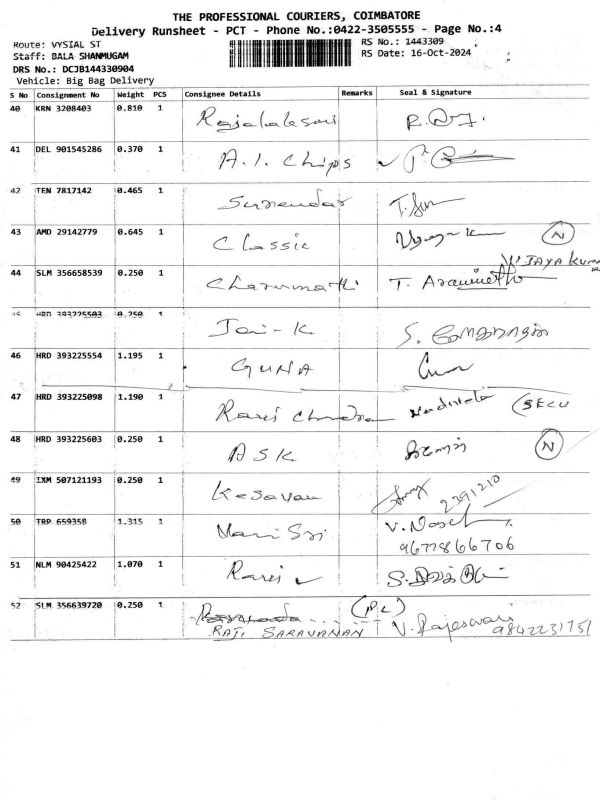 THE PROFESSIONAL COURIERS, COIMBATORE
Delivery Runsheet - PCT - Phone No.:0422-3505555 - Page No.:4
Route: VYSIAL ST RS No.: 1443309
Staff: BALA SHANMUGAM RS Date: 16-Oct-2024
DRS No.: DCJB144330904
Vehicle: Big Bag Delivery
S No Consignment No Weight PCS Consignee Details Remarks Seal & Signature
40 KRN 3208403 0.810 1
41 DEL 901545286 0.370 1 A.I. Chips
42 TEN 7817142 0.465 1 Surendar
43 AMD 29142779 0.645 1 Classic N
44 SLM 356658539 0.250 1 Charumathi T.
45 HRD 393225503 0.250 1 Jai-K
46 HRD 393225554 1.195 1 GUNA
47 HRD 393225098 1.190 1 (SECU
48 HRD 393225603 0.250 1 ASK N
49 IXM 507121193 0.250 1 Kesavan 2391210
50 TRP 659358 1.315 1 Mani Sri V.
9677866706
51 NLM 90425422 1.070 1 S.
52 SLM 356639720 0.250 1
RAJI SARAVANAN V. Rajeswari 9842231751